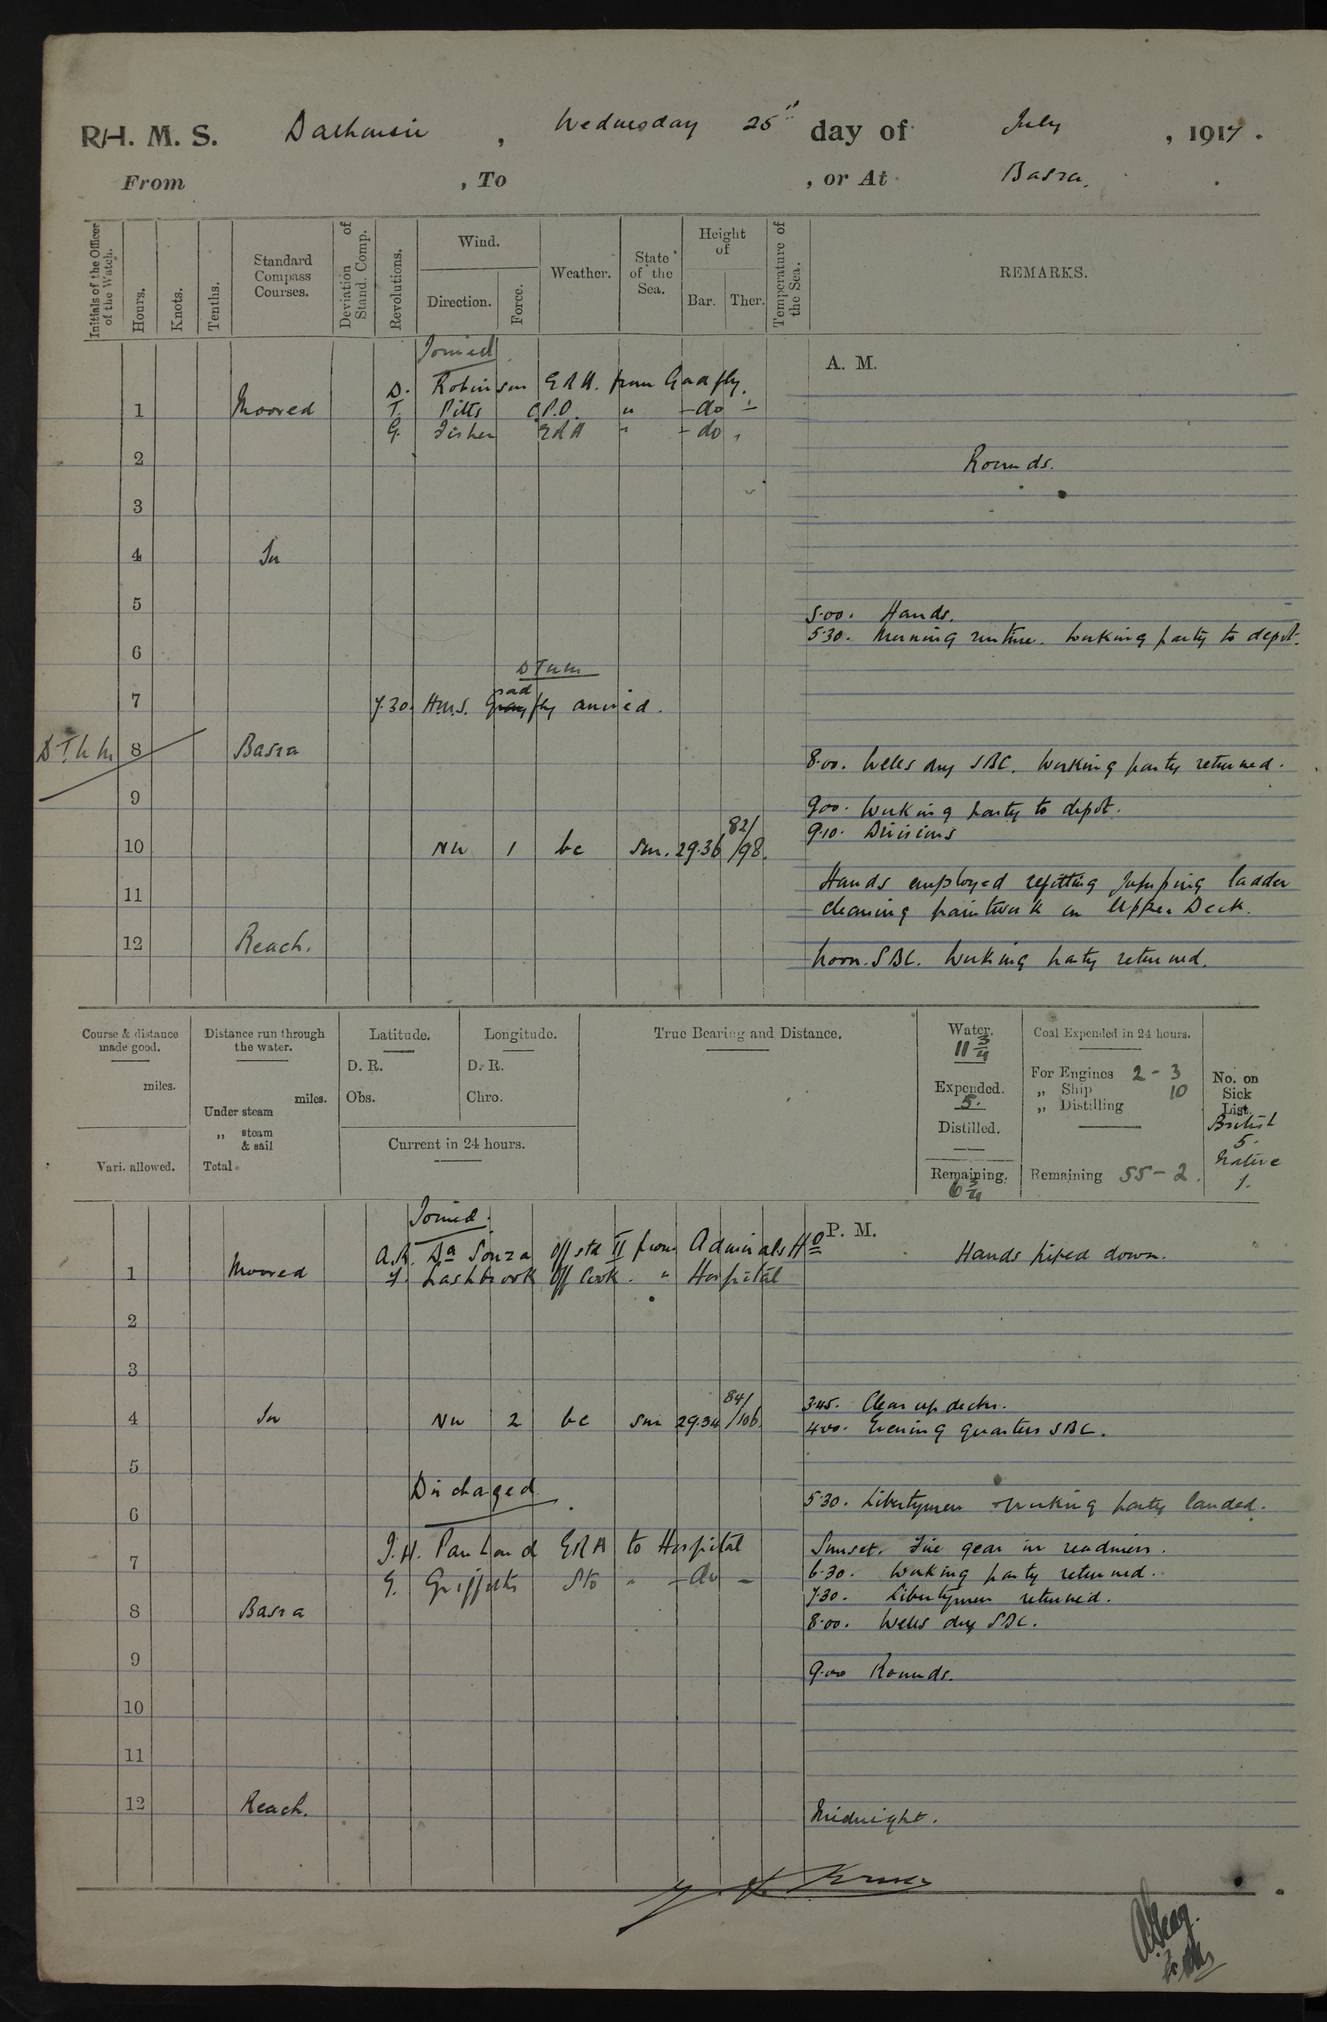 R.H. M. S. Dalhousie, Wednesday 25th day of July, 1917.
From , To , or At Basra.
Initials of the Officer of the Watch.
Hours.
Knots.
Tenths.
Standard Compass Courses.
Deviation of Stand. Comp.
Revolutions.
Wind.
Direction.
Force.
Weather.
State of the Sea.
Height of
Bar.
Ther.
Temperature of the Sea.
REMARKS.
Joined
A. M.
D. Robinson E R A. from Gadfly.
1 Moored T. Pitts C.P.O. " - do -
G. Fisher E R A " - do "
2 Rounds.
3
4 In
5 5.00. Hands.
5.30. Morning routine. Working party to depot.
6
7 7.30. H.M.S. Gadfly arrived.
8 Basra 8.00. Wells dry SBC. Working party returned.
9 9.00. Working party to depot.
9.10. Divisions
10 NW 1 bc Sm. 29.36 82/98.
11 Hands employed refitting Jumping ladder
cleaning paintwork on Upper Deck.
12 Reach. Noon. SBC. Working party returned.
Course & distance made good.
miles.
Vari. allowed.
Distance run through the water.
miles.
Under steam
„ steam & sail
Total
Latitude.
D. R.
Obs.
Longitude.
D. R.
Chro.
Current in 24 hours.
True Bearing and Distance.
Water.
11 3/4
Expended.
5.
Distilled.
Remaining.
6 3/4
Coal Expended in 24 hours.
For Engines 2 - 3
„ Ship 10
„ Distilling
Remaining 55 - 2.
No. on Sick List.
British
5.
Native
1.
Joined.
P. M.
A.R. Da Souza Off std II from Admirals HQ Hands piped down.
1 Moored Lashbrook Off Cook. " Hospital
2
3
3.45. Clear up decks.
4 In NW 2 bc Sm 29.34 84/106. 4.00. Evening quarters SBC.
5
Discharged
5.30. Libertymen & working party landed.
6
J.H. Panhand ERA to Hospital Sunset. Fire gear in readiness.
7 6.30. Working party returned.
G. Griffiths Sto " - do - 7.30. Libertymen returned.
8 Basra 8.00. Wells dry SBC.
9 9.00 Rounds.
10
11
12 Reach. Midnight.